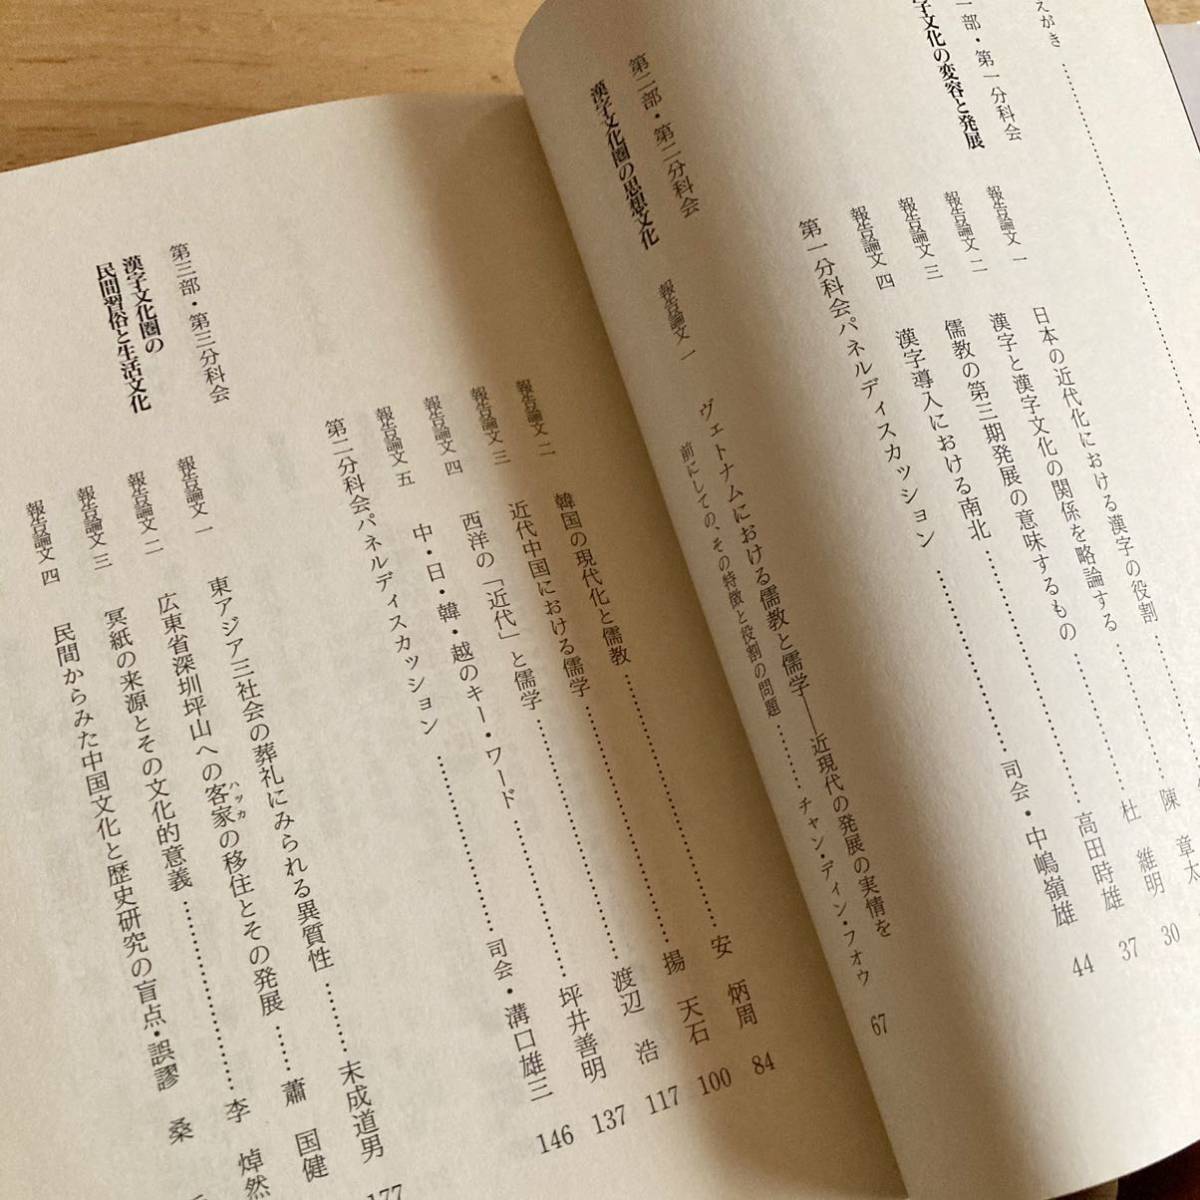 えがき
部・第一分科会
字文化の変容と発展
報告論文 一 日本の近代化における漢字の役割
報告論文 二 漢字と漢字文化の関係を略論する 陳 章太 30
報告論文 三 儒教の第三期発展の意味するもの 杜 維明 37
報告論文 四 漢字導入における南北 高田時雄 44
第一分科会パネルディスカッション 司会・中嶋嶺雄
第二部・第二分科会
漢字文化圏の思想文化
報告論文 一 ヴェトナムにおける儒教と儒学——近現代の発展の実情を
前にしての、その特徴と役割の問題 チャン・ディン・フォウ 67
報告論文 二 韓国の現代化と儒教 安 炳周 84
報告論文 三 近代中国における儒学 揚 天石 100
報告論文 四 西洋の「近代」と儒学 渡辺 浩 117
報告論文 五 中・日・韓・越のキー・ワード 坪井善明 137
第二分科会パネルディスカッション 司会・溝口雄三 146
第三部・第三分科会
漢字文化圏の
民間習俗と生活文化
報告論文 一 東アジア三社会の葬礼にみられる異質性 末成道男 177
報告論文 二 広東省深圳坪山への客家の移住とその発展 蕭 国健
ハッカ
報告論文 三 冥紙の来源とその文化的意義 李 焯然
報告論文 四 民間からみた中国文化と歴史研究の盲点・誤謬 桑